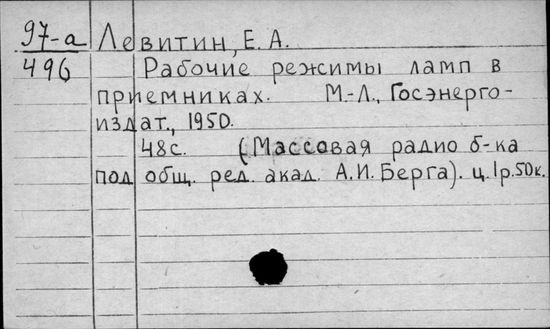 97-а Левитин, Е. А.
496 Рабочие режимы ламп в
приемниках. М.-Л., Госэнерго-
издат., 1950.
48с. (Массовая радио б-ка
под общ. ред. акад. А.И. Берга). ц. 1р.50к.